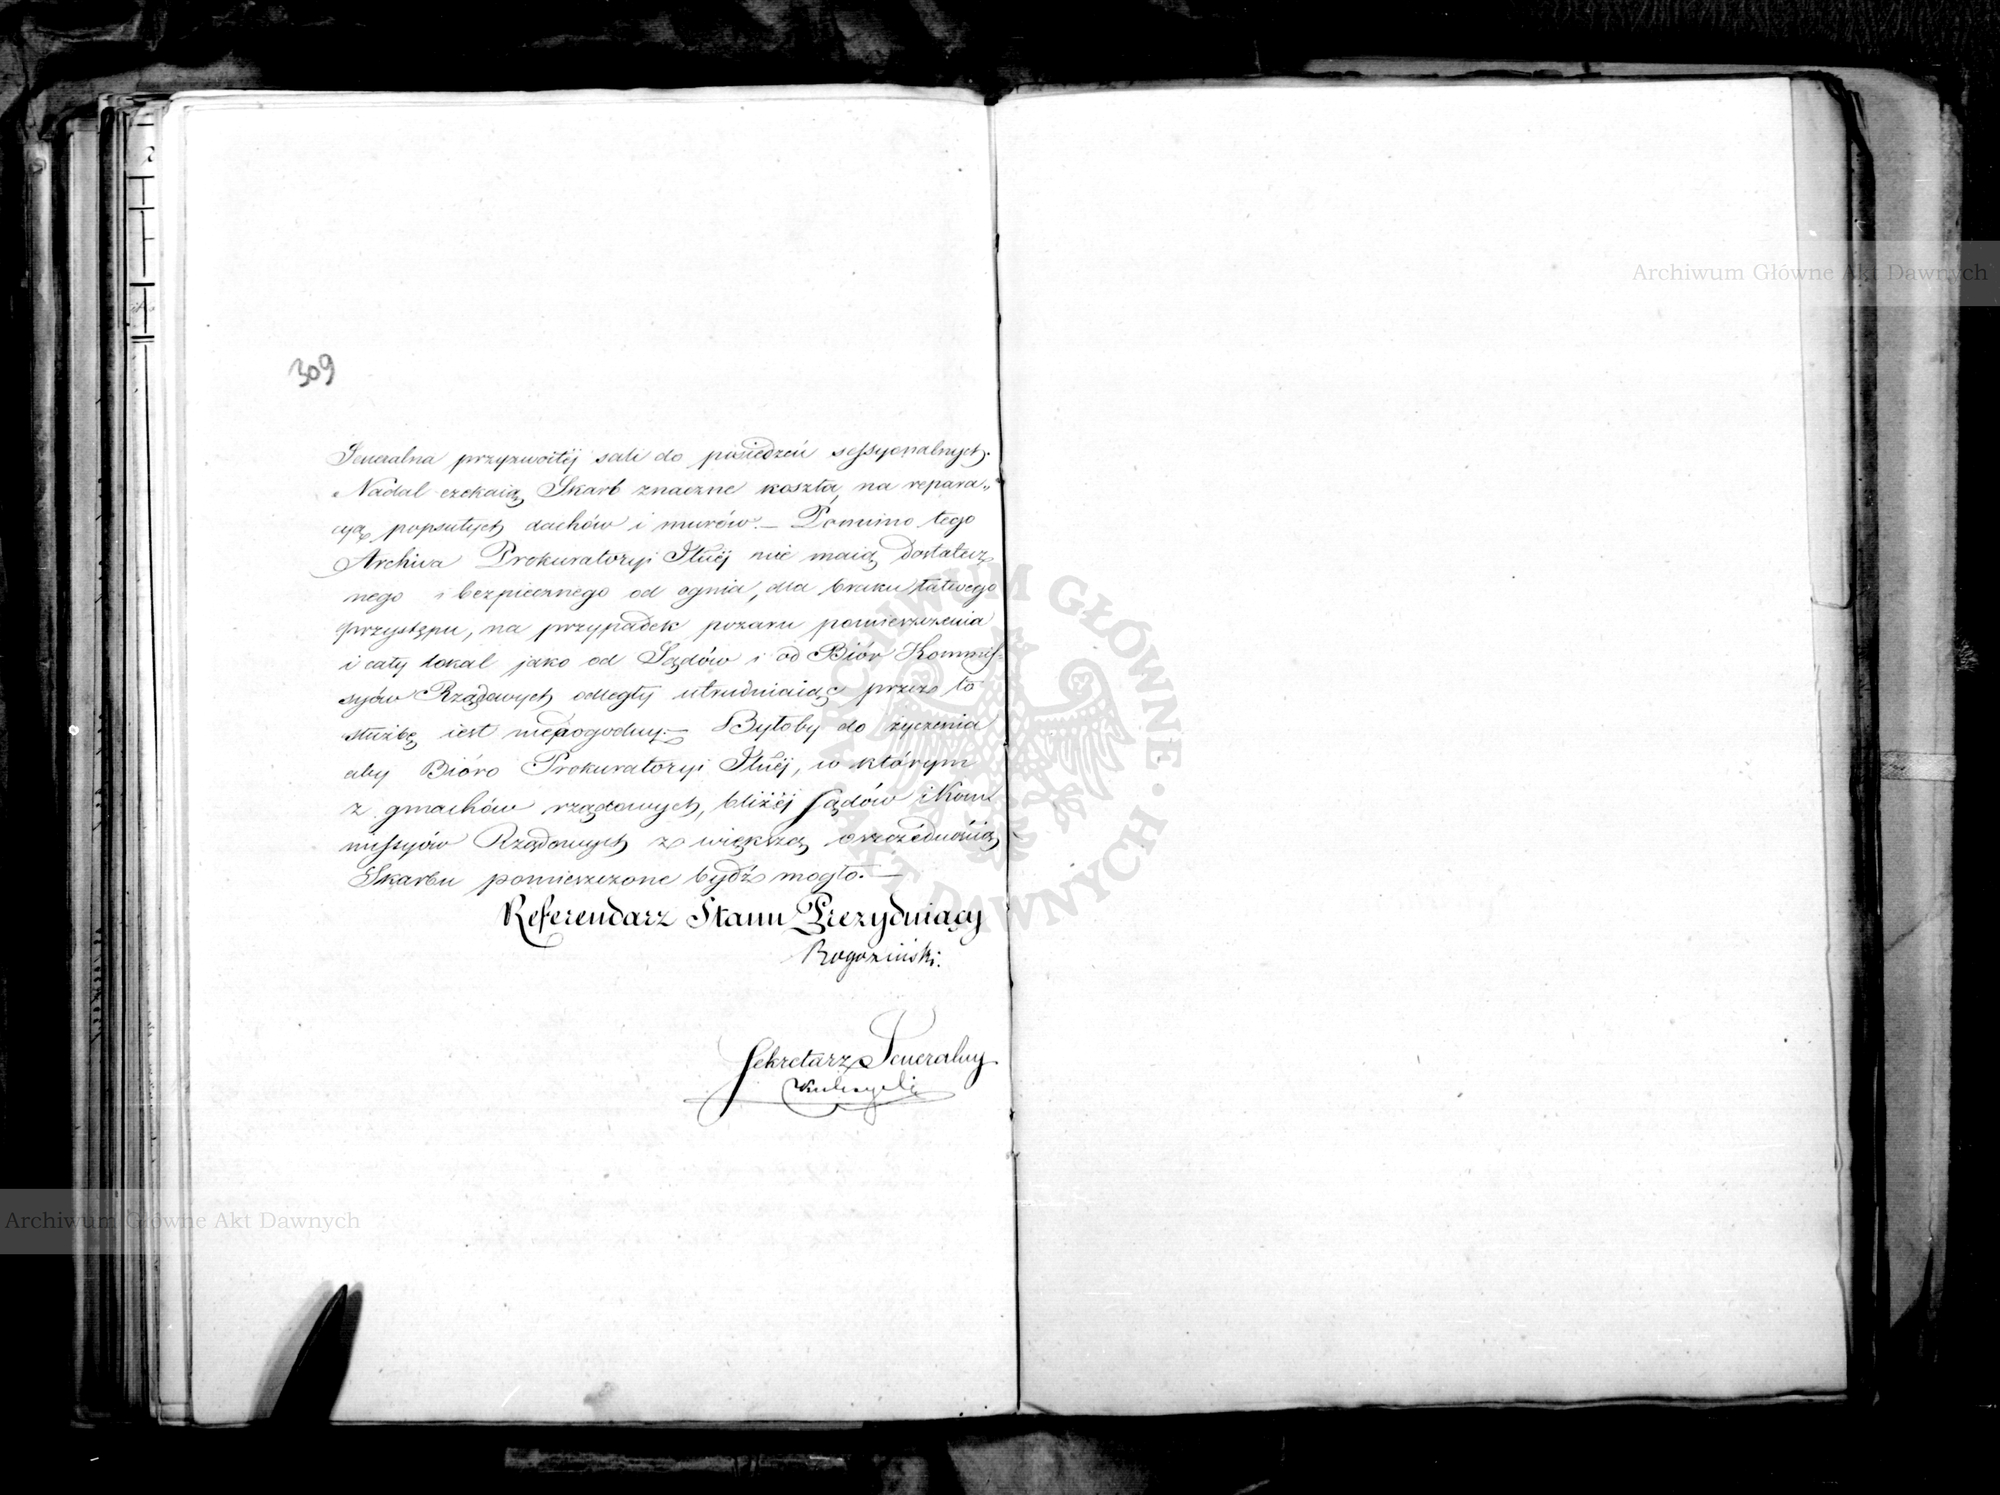 309
Jeneralna przyzwoitéj sali do posiedzeń sessyonalnych.
Nadal czekaią Skarb znaczne koszta, na repara„
cyą popsutych dachów i murów. — Pomimo tego
Archiva Prokuratoryi Jlnéj nie maią dostatecz
nego i bezpiecznego od ognia, dla braku łatwego
przystępu, na przypadek pożaru pomieszczenia
i cały lokal jako od Sądów i od Biór Kommis„
syów Rządowych odległy utrudniaiąc przez to
służbę iest niedogodny. — Byłoby do życzenia
aby Bióro Prokuratoryi Jlnéj, w którym
z gmachów rządowych, bliżéj Sądów i Kom
missyów Rządowych z większą oszczędnością
Skarbu pomieszczone bydź mogło. —
Referendarz Stanu Prezyduiący
Rogoziński.
Sekretarz Jeneralny
Archiwum Główne Akt Dawnych
Archiwum Główne Akt Dawnych
ARCHIWUM GŁÓWNE AKT DAWNYCH